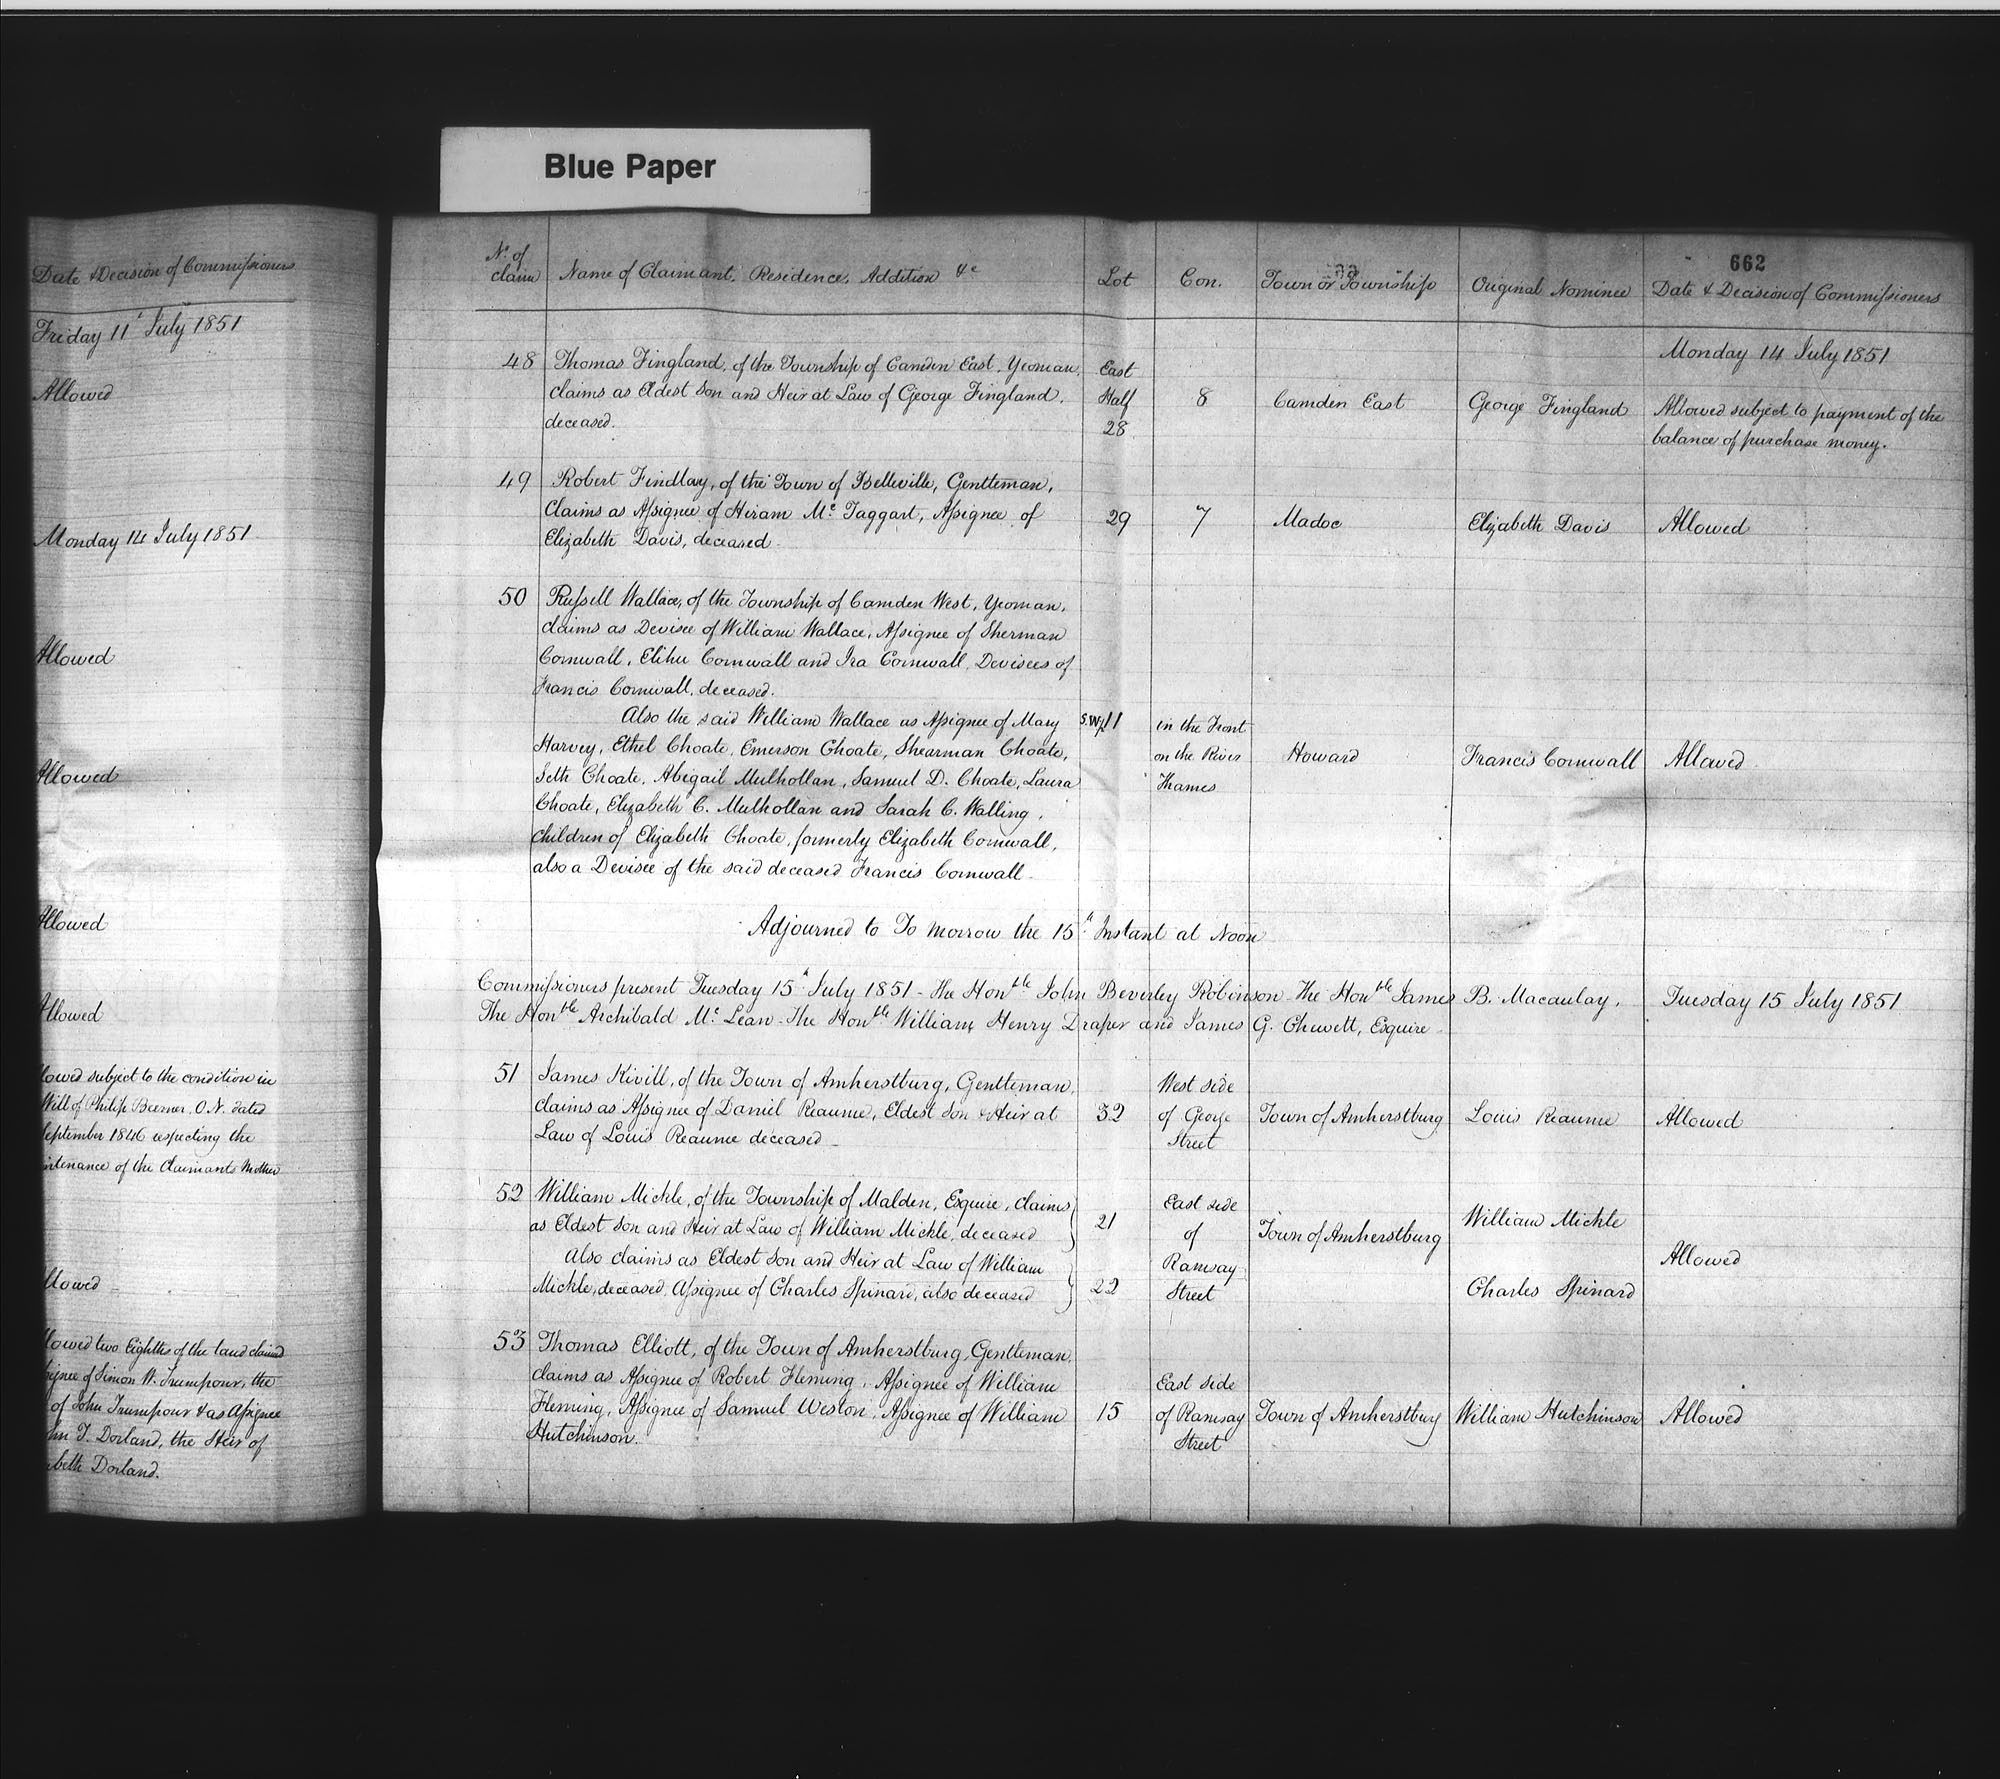 Blue Paper
Date & Decision of Commissioners
Friday 11 July 1851
Allowed
Monday 14 July 1851
Allowed
Allowed
Allowed
Allowed
lowed subject to the condition in
Will of Philip Beemer. O.N. dated
September 1846 respecting the
intenance of the Claimants Mother
llowed
llowed two Eighths of the land claimed
ignee of Simon W. Trumpour, the
of John Trumpour & as Assignee
hn T. Dorland, the Heir of
abeth Dorland.
662
No. of claim
Name of Claimant, Residence, Addition &c
Lot
Con.
Town or Township
Original Nominee
Date & Decision of Commissioners
Monday 14 July 1851
48
Thomas Fingland, of the Township of Camden East, Yeoman,
claims as Eldest Son and Heir at Law of George Fingland,
deceased.
East
Half
28
8
Camden East
George Fingland
Allowed subject to payment of the
balance of purchase money.
49
Robert Findlay, of the Town of Belleville, Gentleman,
Claims as Assignee of Hiram Mc Taggart, Assignee of
Elizabeth Davis, deceased
29
7
Madoc
Elizabeth Davis
Allowed
50
Russell Wallace, of the Township of Camden West, Yeoman,
claims as Devisee of William Wallace, Assignee of Sherman
Cornwall, Elihu Cornwall and Ira Cornwall, Devisees of
Francis Cornwall, deceased.
Also the said William Wallace as Assignee of Mary
Harvey, Ethel Choate, Emerson Choate, Shearman Choate,
Seth Choate, Abigail Mulhollan, Samuel D. Choate, Laura
Choate, Elizabeth C. Mulhollan and Sarah C. Walling,
children of Elizabeth Choate, formerly Elizabeth Cornwall,
also a Devisee of the said deceased Francis Cornwall
11
in the Front
on the River
Thames
Howard
Francis Cornwall
Allowed
Adjourned to To morrow the 15th Instant at Noon
Commissioners present Tuesday 15th July 1851 - The Honble John Beverley Robinson - The Honble James B. Macaulay,
The Honble Archibald Mc Lean - The Honble William Henry Draper and James G. Chewett, Esquire
Tuesday 15 July 1851
51
James Kivill, of the Town of Amherstburg, Gentleman,
claims as Assignee of Daniel Reaume, Eldest Son & Heir at
Law of Louis Reaume deceased
32
West side
of George
Street
Town of Amherstburg
Louis Reaume
Allowed
52
William Mickle, of the Township of Malden, Esquire, claims
as Eldest Son and Heir at Law of William Mickle, deceased
Also claims as Eldest Son and Heir at Law of William
Mickle, deceased, Assignee of Charles Spinard, also deceased
21
22
East side
of
Ramsay
Street
Town of Amherstburg
William Mickle
Charles Spinard
Allowed
53
Thomas Elliott, of the Town of Amherstburg, Gentleman,
claims as Assignee of Robert Fleming, Assignee of William
Fleming, Assignee of Samuel Weston, Assignee of William
Hutchinson.
15
East side
of Ramsay
Street
Town of Amherstburg
William Hutchinson
Allowed